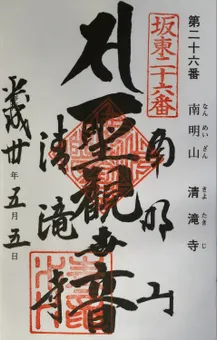 第二十六番 南明山 清滝寺
なんめいざん きよたきじ
坂東二十六番
南明山
聖観世音
清滝寺
平成廿年五月五日